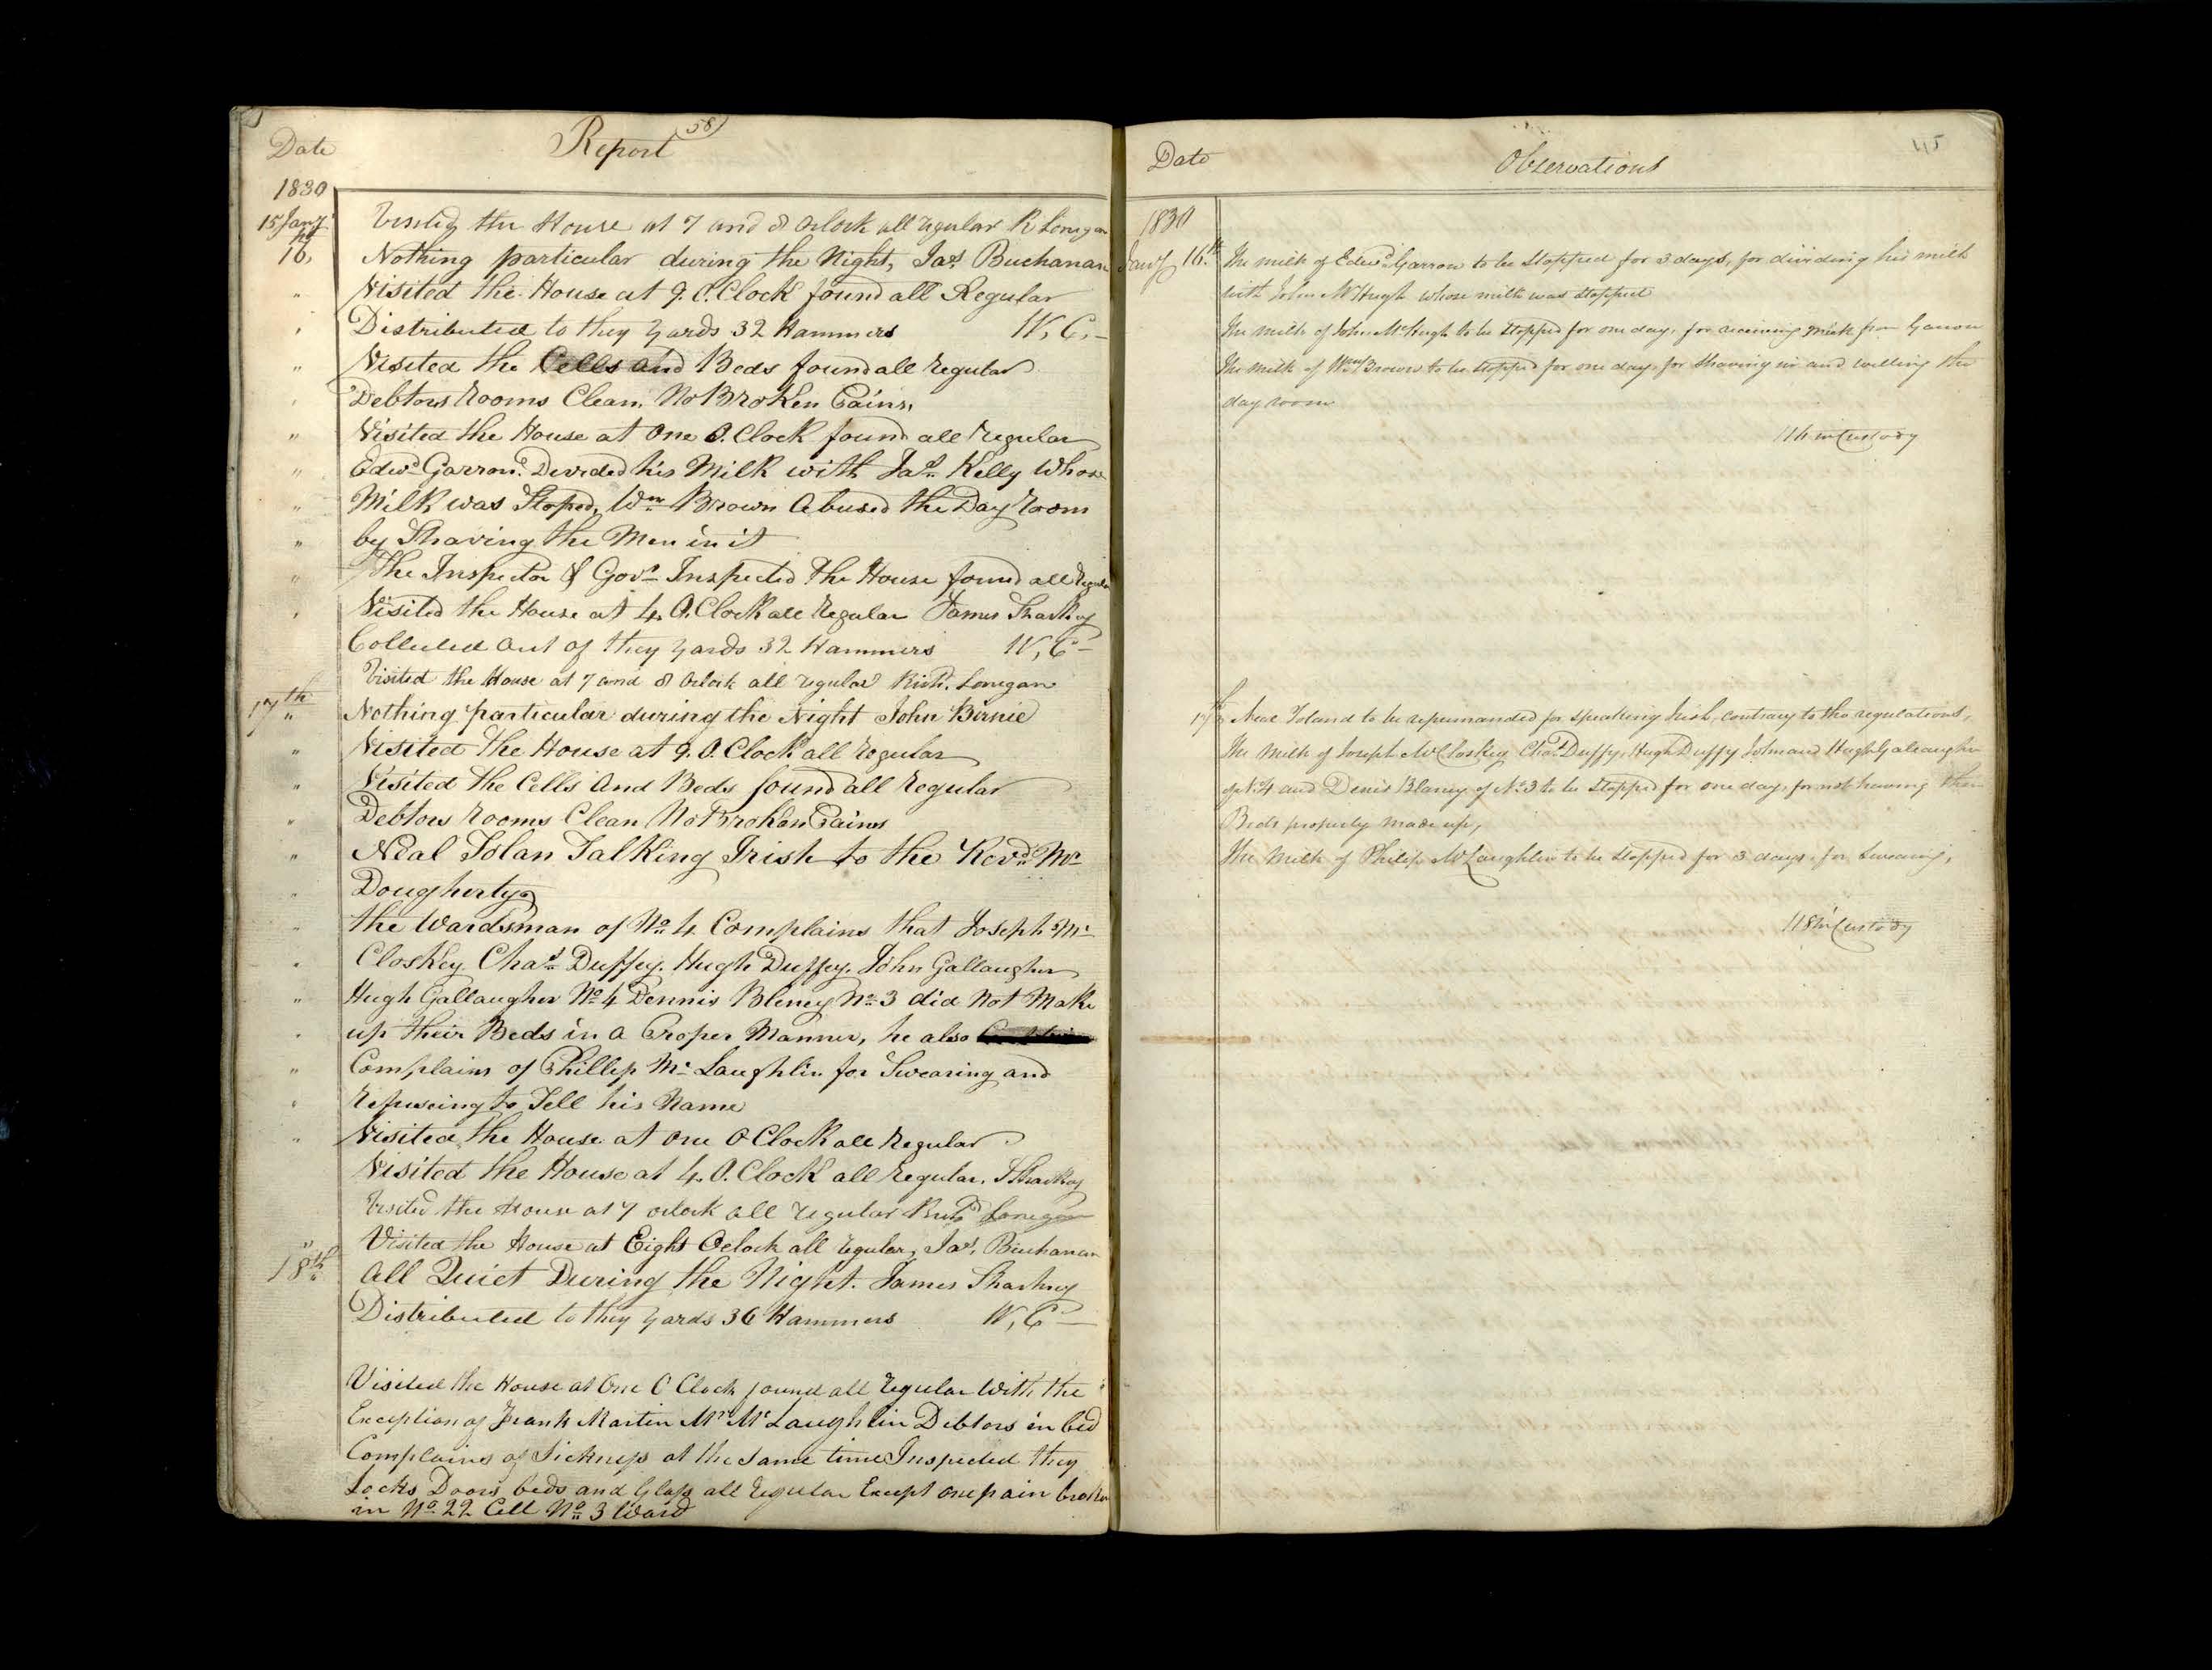 Date Report (58)
1830
15 Jany Visitig the House at 7 and 8 Oclock all regular R Lonigan
16th Nothing particular during the Night, Jas. Buchanan
" Visited the House at 9. O.Clock found all Regular
" Distributed to they yards 32 Hammers W, C, –
" Visited the Cells and Beds found all regular
" Debtors Rooms Clean, No Broken Pains,
" Visited the House at One O.Clock found all regular
" Edwd. Garron. Devided his Milk with Jas. Kelly Whose
" Milk was Stoped, Wm Brown Abused the Day Room
" by Shaving the Men in it
" The Inspector & Govr. Inspected The House found all regular
" Visited the House at 4. O,Clock all regular James Sharkey
Collected out of they yards 32 Hammers W, C –
Visited the House at 7 and 8 Oclock all regular Richd. Lonigan
17th " Nothing particular during the Night John Birnie
" Visited The House at 9. O.Clock all regular
" Visited the Cells And Beds found all regular
" Debtors Rooms Clean No Broken Pains
" Neal Tolan Talking Irish to the Revd. Mr
" Dougherty
" the Wardsman of No 4 Complains that Joseph Mc
" Closkey. Chas. Duffey. Hugh Duffey. John Gallaugher
" Hugh Gallaugher No 4 Dennis Bleney No 3 did Not Make
" up their Beds in a Proper Manner, he also
" Complains of Phillip Mc Laughlin for Swearing and
" Refuseing to Tell his Name
" Visited the House at One O Clock all regular
Visited the House at 4. O.Clock all regular. J Sharkey
Visited the House at 7 oclock all regular Richd Lonigan
" Visited the House at Eight Oclock all regular, Jas. Buchanan
18th " All Quiet During the Night. James Sharkey
Distributed to they yards 36 Hammers W, C –
Visited the House at One O Clock found all regular With the
Exception of Frank Martin Mr Mc Laughlin Debtors in bed
Complains of Sickness at the same time Inspected they
Locks Doors, beds and Glass all regular Except one pain broken
in No 22 Cell No 3 Ward
Date Observations 45
1830
Jany 16th The milk of Edwd. Garron to be stopped for 3 days, for dividing his milk
with John McHugh whose milk was stopped
The milk of John McHugh to be stopped for one day, for receiving milk from Garron
The milk of Wm Brown to be stopped for one day, for shaving in and the
day room
116 in Custody
17th Neal Toland to be repremanded for speaking Irish, contrary to the regulations,
The milk of Joseph McCloskey, Chas. Duffy, Hugh Duffy John and Hugh Galeaugher
of No 4 and Denis Blaney of No 3 to be stopped for one day, for not having their
Beds properly made up,
The milk of Philip McLaughlin to be stopped for 3 days, for swearing,
118 in Custody